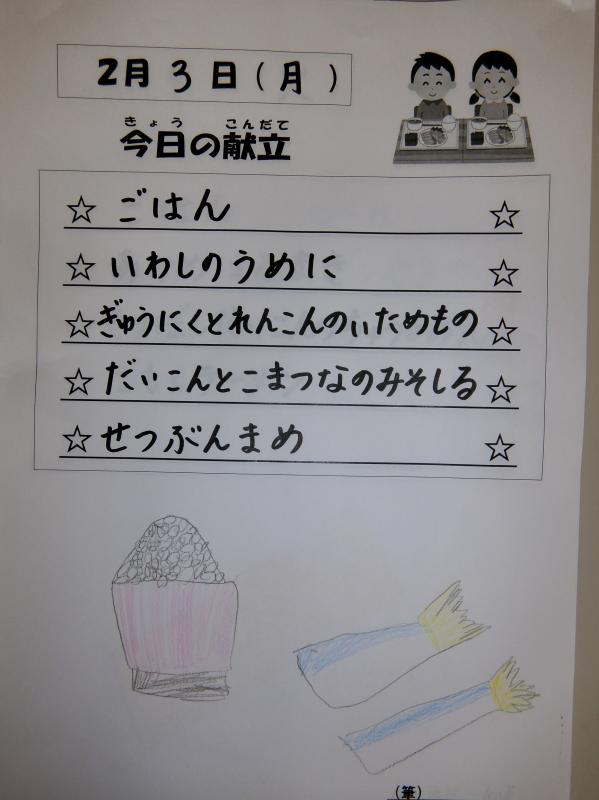 2月3日(月)
きょう こんだて
今日の献立
☆ごはん☆
☆いわしのうめに☆
☆ぎゅうにくとれんこんのいためもの☆
☆だいこんとこまつなのみそしる☆
☆せつぶんまめ☆
(筆)